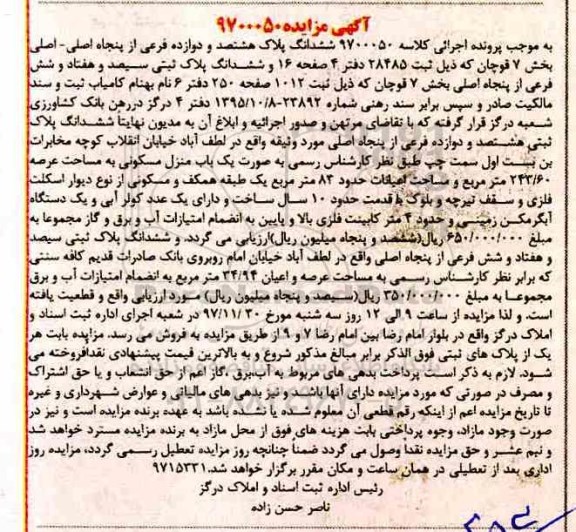 آگهی مزایده ۹۷۰۰۰۵۰
به موجب پرونده اجرائی کلاسه ۹۷۰۰۰۵۰ ششدانگ پلاک هشتصد و دوازده فرعی از پنجاه اصلی- اصلی
بخش ۷ قوچان که ذیل ثبت ۲۸۴۸۵ دفتر ۴ صفحه ۱۶ و ششدانگ پلاک ثبتی سیصد و هفتاد و شش
فرعی از پنجاه اصلی بخش ۷ قوچان که ذیل ثبت ۱۰۱۲ صفحه ۲۵۰ دفتر ۶ نام بهنام کامیاب ثبت و سند
مالکیت صادر و سپس برابر سند رهنی شماره ۲۳۸۹۲-۱۳۹۵/۱۰/۸ دفتر ۴ درگز دررهن بانک کشاورزی
شعبه درگز قرار گرفته که با تقاضای مرتهن و صدور اجرائیه و ابلاغ آن به مدیون نهایتا ششدانگ پلاک
ثبتی هشتصد و دوازده فرعی از پنجاه اصلی مورد وثیقه واقع در لطف آباد خیابان انقلاب کوچه مخابرات
بن بست اول سمت چپ طبق نظر کارشناس رسمی به صورت یک باب منزل مسکونی به مساحت عرصه
۲۴۳/۶۰ متر مربع و مساحت اعیانات حدود ۸۳ متر مربع یک طبقه همکف و مسکونی از نوع دیوار اسکلت
فلزی و سقف تیرچه و بلوک با قدمت حدود ۱۰ سال ساخت و دارای یک عدد کولر آبی و یک دستگاه
آبگرمکن زمینی و حدود ۴ متر کابینت فلزی بالا و پایین به انضمام امتیازات آب و برق و گاز مجموعا به
مبلغ ۶۵۰/۰۰۰/۰۰۰ ریال(ششصد و پنجاه میلیون ریال)ارزیابی می گردد. و ششدانگ پلاک ثبتی سیصد
و هفتاد و شش فرعی از پنجاه اصلی واقع در لطف آباد خیابان امام روبروی بانک صادرات قدیم کافه سنتی
که برابر نظر کارشناس رسمی به مساحت عرصه و اعیان ۳۴/۹۴ متر مربع به انضمام امتیازات آب و برق
مجموعا به مبلغ ۳۵۰/۰۰۰/۰۰۰ ریال(سیصد و پنجاه میلیون ریال)- مورد ارزیابی واقع و قطعیت یافته
است. و لذا مزایده از ساعت ۹ الی ۱۲ روز سه شنبه مورخ ۹۷/۱۱/۳۰ در شعبه اجرای اداره ثبت اسناد و
املاک درگز واقع در بلوار امام رضا بین امام رضا ۷ و ۹ از طریق مزایده به فروش می رسد. مزایده بابت هر
یک از پلاک های ثبتی فوق الذکر برابر مبالغ مذکور شروع و به بالاترین قیمت پیشنهادی نقدافروخته می
شود. لازم به ذکر است پرداخت بدهی های مربوط به آب،برق ،گاز اعم از حق انشعاب و یا حق اشتراک
و مصرف در صورتی که مورد مزایده دارای آنها باشد، و نیز بدهی های مالیاتی و عوارض شهرداری و غیره
تا تاریخ مزایده اعم از اینکه رقم قطعی آن معلوم شده یا نشده باشد به عهده برنده مزایده است و نیز در
صورت وجود مازاد، وجوه پرداختی بابت هزینه های فوق از محل مازاد به برنده مزایده مسترد خواهد شد
و نیم عشر و حق مزایده نقدا وصول می گردد ضمنا چنانچه روز مزایده تعطیل رسمی گردد، مزایده روز
اداری بعد از تعطیلی در همان ساعت و مکان مقرر برگزار خواهد شد. ۹۷۱۵۳۳۱
رئیس اداره ثبت اسناد و املاک درگز
ناصر حسن زاده